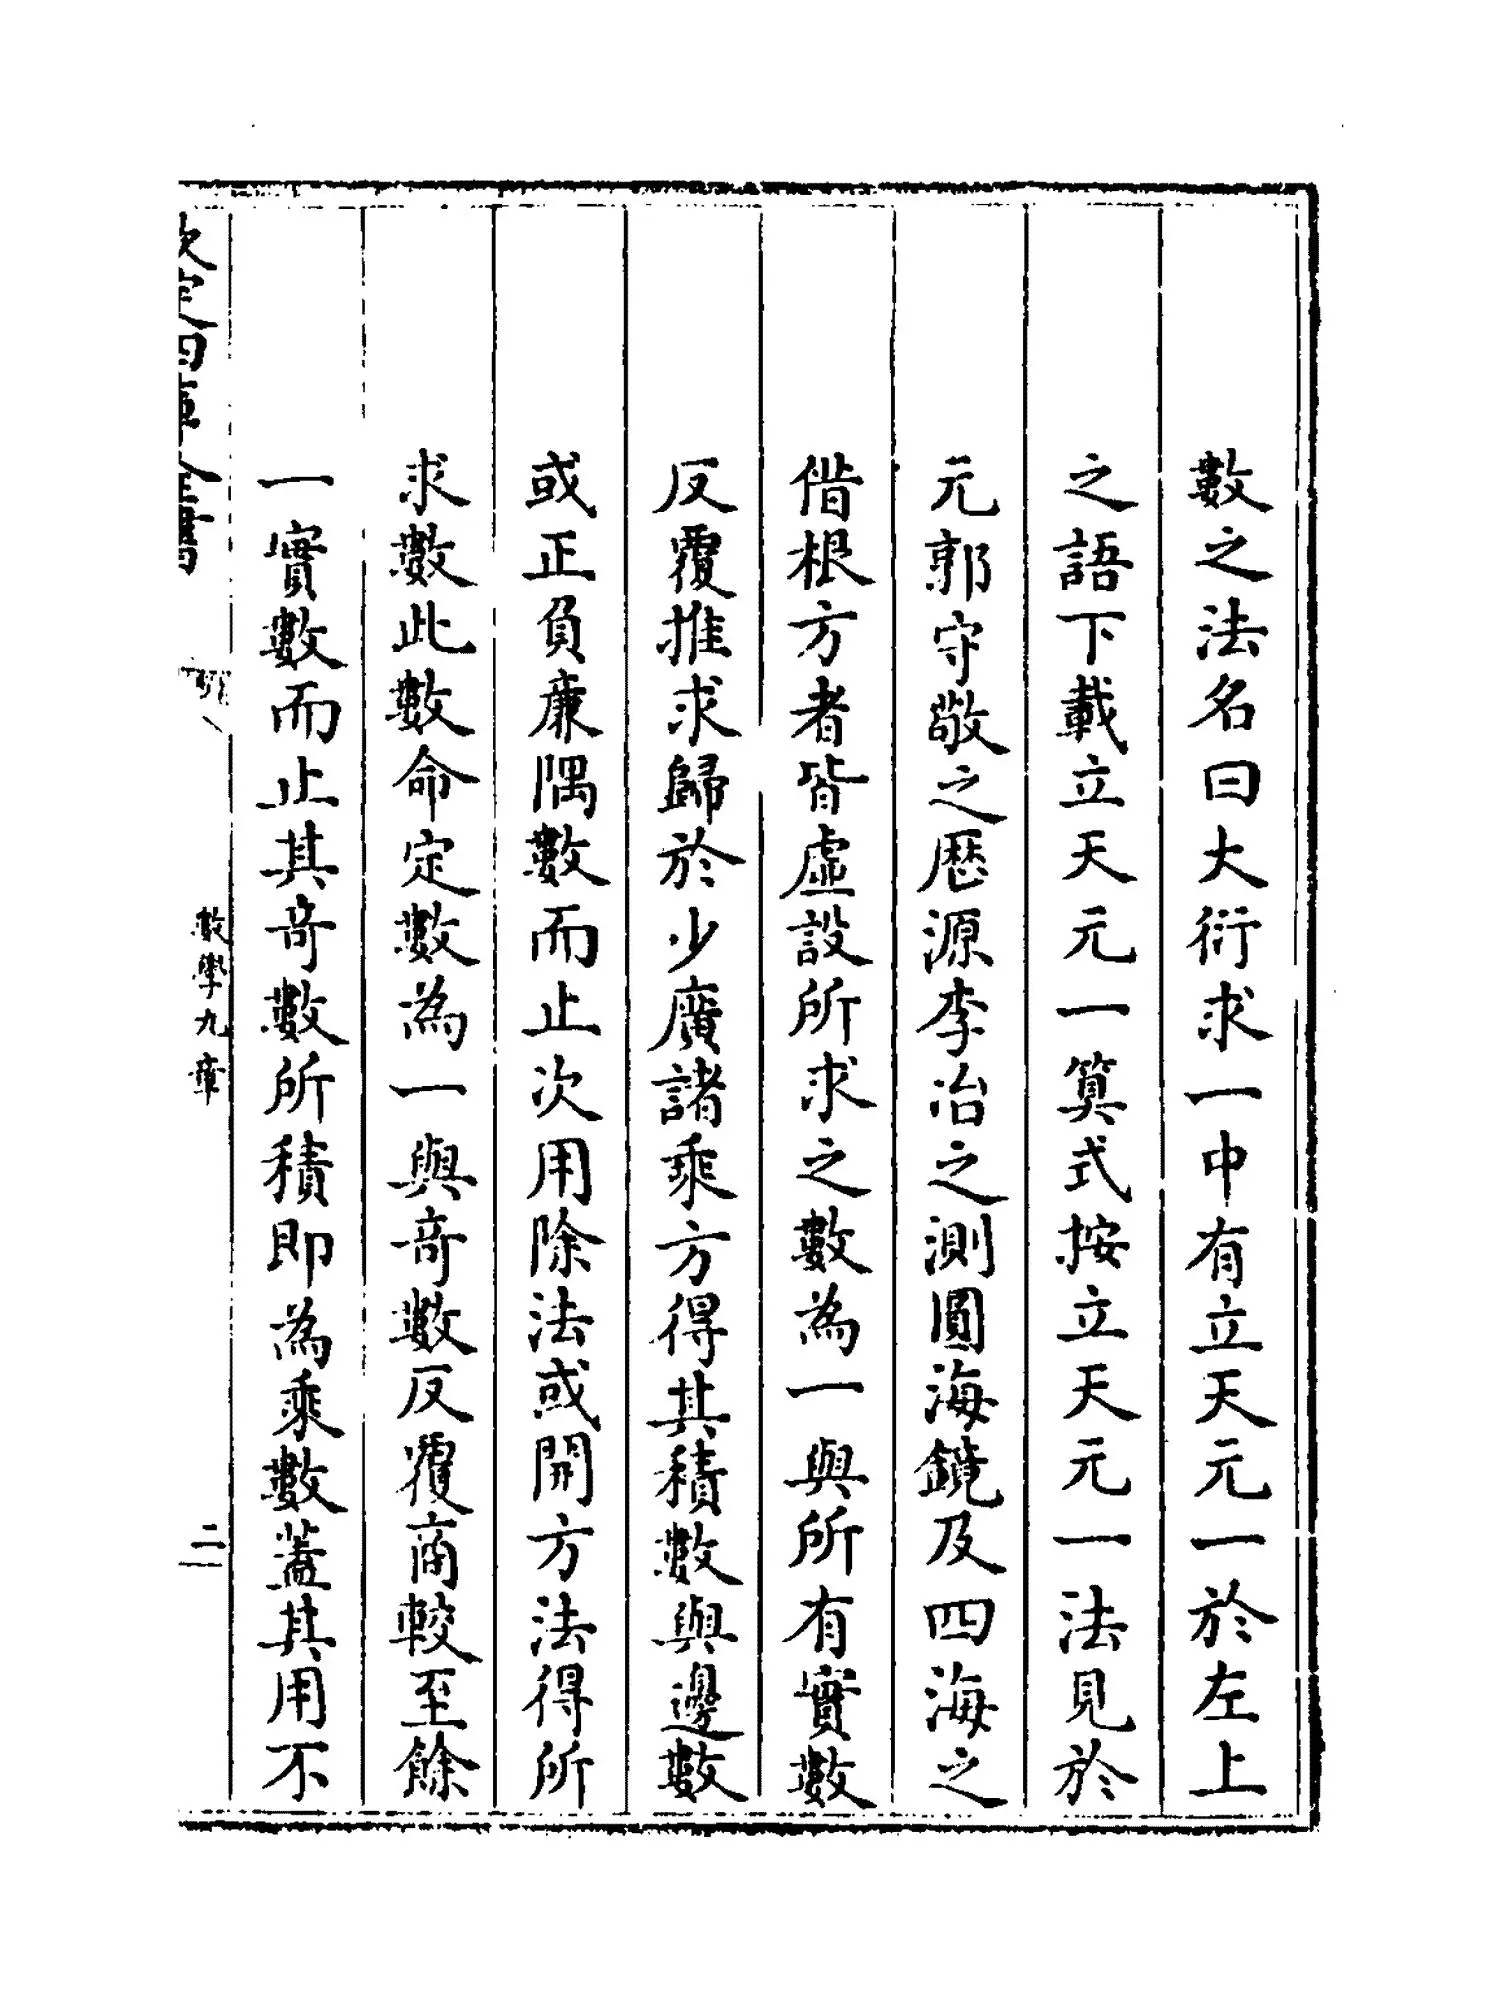 數之法名曰大衍求一中有立天元一於左上
之語下載立天元一算式按立天元一法見於
元郭守敬之歴源李冶之測圓海鏡及四海之
借根方者皆虛設所求之數為一與所有實數
反覆推求歸於少廣諸乘方得其積數與邊數
或正負廉隅數而止次用除法或開方法得所
求數此數命定數為一與奇數反覆商較至餘
一實數而止其奇數所積即為乘數蓋其用不
欽定四庫全書
數學九章
二